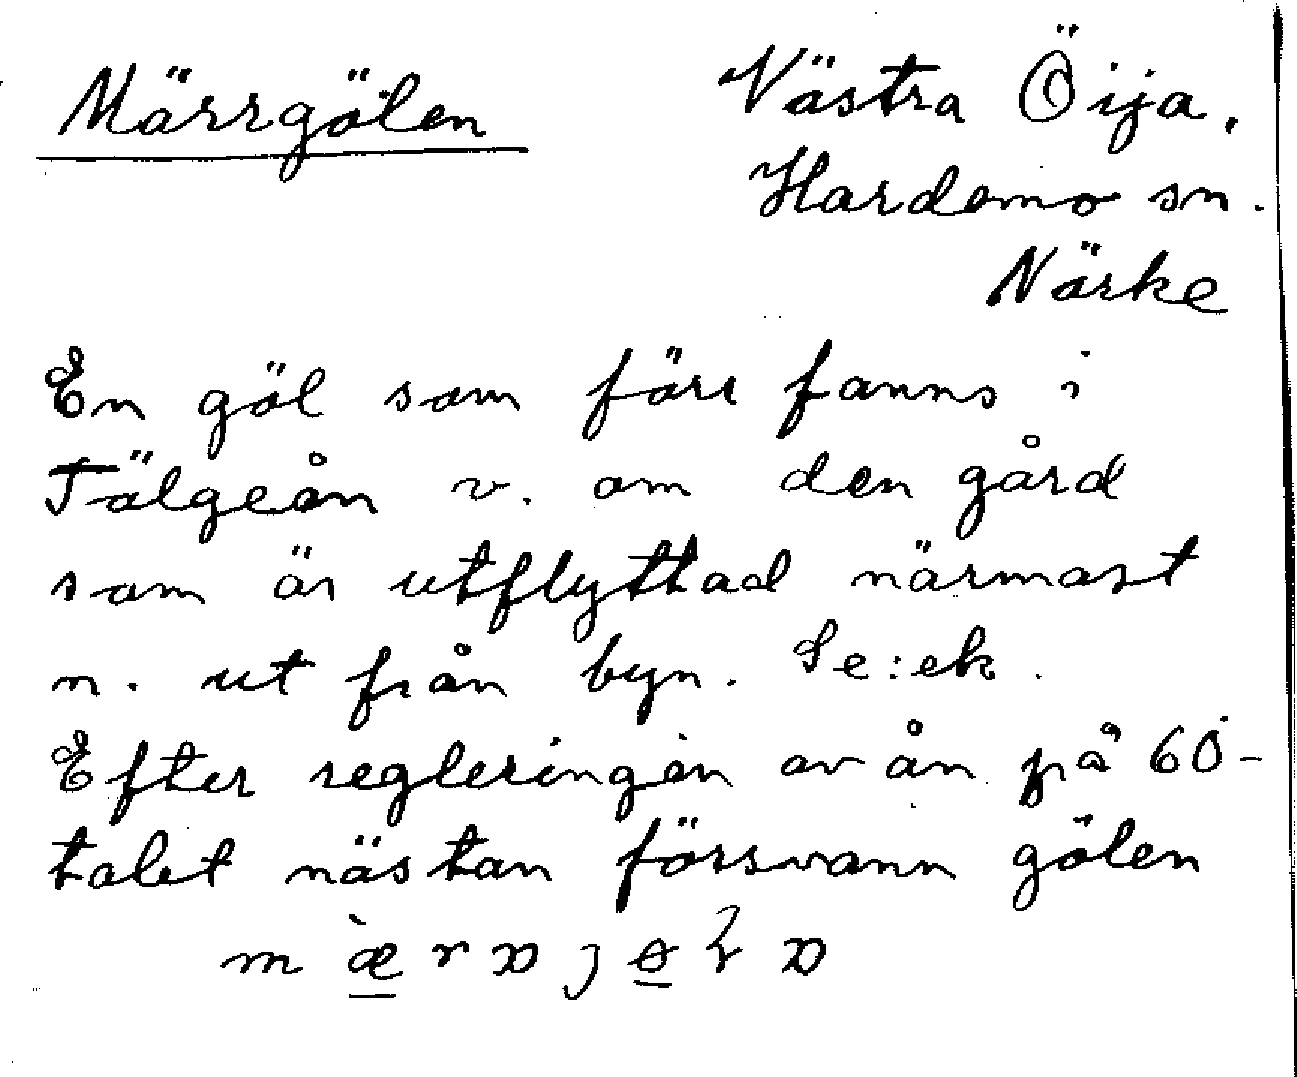 Märrgölen
Västra Öija,
Hardemo sn.
Närke
En göl som förr fanns i
Tälgeån v. om den gård
som är utflyttad närmast
n. ut från byn. Se: ek.
Efter regleringen av ån på 60-
talet nästan försvann gölen